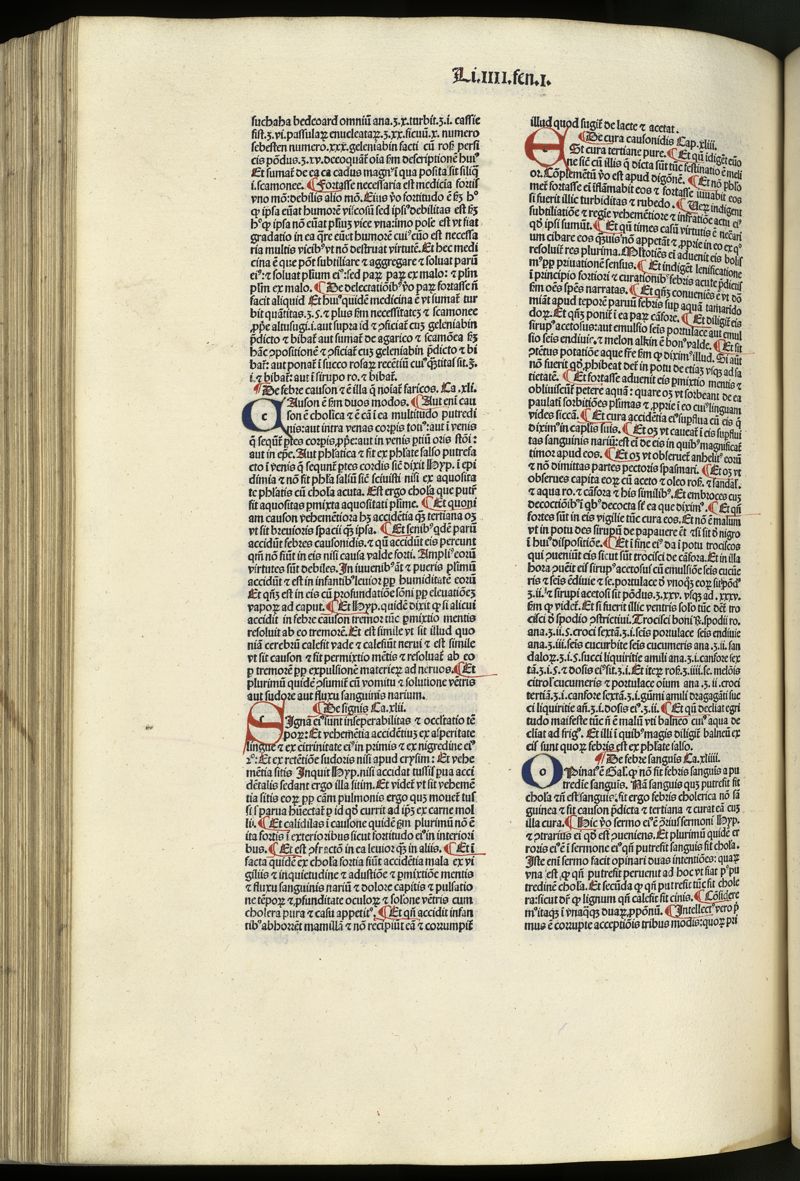 Li.IIII.fen.I.
suchaha bedcoard omniũ ana.ʒ.x.turbit.ʒ.i. cassie
fist.ʒ.vi.passulaꝝ enucleataꝝ.ʒ.xx.sicuũ.x. numero
sebesten numero.xxx.geleniabin facti cũ ros̃ persi
cis põdus.ʒ.xv.decoquãt̃ oĩa ẜm descriptionẽ hui⁹
Et sumat̃ de ea cadus magn⁹ĩ qua posita sit siliq̃
.i.scamonee. ¶Fortasse necessaria est medicĩa fortis
vno mõ:debilis alio mõ. Eius v̾o fortitudo ẽ ẜꝫ h⁹
ꝙ ipsa eũat humorẽ viscosũ sed ipsi⁹debilitas est ẜꝫ
h⁹ꝙ ipsa nõ eũat pl̃imũ vice vna:imo pole est vt fiat
gradatio in ea q̃re eũet humorẽ cui⁹eũo est necessa
ria multis vicib⁹vt nõ destruat virtutẽ. Et hec medi
cina ẽ que põt subtiliare ⁊ aggregare ⁊ soluat parũ
ei⁹: ⁊ soluat pl̃ium ei⁹:sed paꝝ paꝝ ex malo: ⁊ pl̃m
pl̃m ex malo. ¶De delectatiõib⁹v̾o paꝝ fortasse ñ
facit aliquid Et hui⁹quidẽ medicina ẽ vt sumat̃ tur
bit quãtitas.ʒ.s. ⁊ plus ẜm necessitatẽ ⁊ scamonee
ꝓp̃e altusugi.i.aut supra id ⁊ ꝯficiat̃ cuꝫ geleniabin
p̃dicto ⁊ bibat̃ aut sumat̃ de agarico ⁊ scamõea ẜꝫ
hãc ꝓpositionẽ ⁊ ꝯficiat̃ cuꝫ geleniabin p̃dicto ⁊ bi
bat̃: aut ponat̃ ĩ succo rosaꝝ recẽtiũ cui⁹q̃titas sit.ʒ.
.i.⁊ bibat̃: aut ĩ sirupo ro. ⁊ bibat̃.
¶De febre causon ⁊ ẽ illa q̃ noĩat̃ faricos. Ca .xli.
CAuson ẽ ẜm duos modos. ¶Aut eni cau
son ẽ cholica ⁊ ẽ cã ĩ ea multitudo putredi
nis:aut intra venas corꝑis toti⁹:aut ĩ venis
q̃ sequũt̃ ptes corꝑis.ꝓp̃e:aut in venis ptiũ oris stõi:
aut in ep̃e. Aut phl̃atica ⁊ fit ex phl̃ate salso putrefa
cto ĩ venis q̃ sequnt̃ ptes cordis siẽ dixit Hyp. ĩ epi
dimia ⁊ nõ fit phl̃a salsũ siẽ sciuisti nisi ex aquosita
te phl̃atis cũ chol̃a acuta. Est ergo chol̃a que putr̃
fit aquositas pmixta aquositati psĩme. ¶Et quoni
am causon vehemẽtiora hꝫ accidẽtia qꝫ tertiana oꝫ
vt sit breuioris spacii qꝫ ipsa. ¶Et senib⁹qdẽ parũ
accidũt febres causonidis.⁊ qñ accidũt eis pereunt
qm̃ nõ fiũt in eis nisi causa valde forti. Ampli⁹eorũ
virtutes sũt debiles. In iuuenib⁹ãt ⁊ pueris pl̃imũ
accidũt ⁊ est in infantib⁹leuior ꝓꝑ humiditatẽ eorũ
Et qñꝫ est in eis cũ ꝓfundatiõe sõni ꝓꝑ eleuatiõeꝫ
vapoꝝ ad caput. ¶Et Hyp.quidẽ dixit ꝙ si alicui
accidit in febre causon tremor tũc ꝑmixtio mentis
resoluit ab eo tremorẽ. Et est simile vt sit illud quo
niã cerebrũ calefit valde ⁊ calefiũt nerui ⁊ est simile
vt sit causon ⁊ sit permixtio mẽtis ⁊ resoluat̃ ab eo
ꝑ tremorẽ ꝓꝑ expulsionẽ materieꝝ ad neruos.¶Et
plurimũ quidẽ ꝯsumit̃ cũ vomitu ⁊ solutione vẽtris
aut sudore aut fluxu sanguinis narium.
¶De signis Ca.xlii.
SIgnã ei⁹sunt inseperabilitas ⁊ occitatio tẽ
poꝝ: Et vehemẽtia accidẽtius ex asperitate
lingue ⁊ ex citrinitate ei⁹in primis ⁊ ex nigredine ei⁹
⁊: Et ex retẽtiõe sudoris nisi apud crysim: Et vehe
mẽtia sitis Inquit Hyp.nisi accidat tussis pua acci
dẽtalis sedant ergo illa sitim. Et videt̃ vt sit vehemẽ
tia sitis eoꝝ ꝓꝑ cãm pulmonis ergo quꝫ mouet̃ tus
si ĩ parua hũectat̃ ꝑ id qd̃ currit ad ip̃ꝫ ex carne mol
li. ¶Et caliditas ĩ causone quidẽ ẜm plurimũ nõ ẽ
ita fortis ĩ exterioribus sicut fortitudo ei⁹in interiori
bus. ¶Et est ꝯfractõ in ea leuior qꝫ in aliis. ¶Et ĩ
facta quidẽ ex chol̃a fortia fiũt accidẽtia mala ex vi
giliis ⁊ inquietudine ⁊ adustiõe ⁊ ꝑmixtiõe mentis
⁊ fluxu sanguinis nariũ ⁊ dolore capitis ⁊ pulsatio
ne tẽpoꝝ ⁊ ꝓfunditate oculoꝝ ⁊ solõne vẽtris cum
cholera pura ⁊ casu appetit⁹. ¶Et qñ accidit infan
tib⁹abhorrẽt mamillã ⁊ nõ recipiũt eã ⁊ corrumpit̃
illud quod sugit̃ de lacte ⁊ acetat̃.
¶De cura causonidis Cap.xliii.
ESt cura tertiane pure. ¶Et qñ ĩdiget̃ eũo
ne siẽ cũ illis q̃ dicta sũt tũc festinatio ẽ meli
or. Cõplementũ v̾o est apud digõnẽ. ¶Et nõ phl̃o
met̃ fortasse eĩ ĩflãmabit eos ⁊ fortasse iuuabit eos
si fuerit illic turbiditas ⁊ rubedo. ¶Veꝝ indigent
subtiliatiõe ⁊ regie vehemẽtiore ⁊ infrãtiõe actu ei⁹
qd̃ ipsi sumũt. ¶Et qñ times casũ virtutis ẽ necãri
um cibare eos qꝫuis nõ appetãt ⁊ ꝓprie in eo ex q⁹
resoluit̃ res plurima.
m⁹ꝓꝑ priuationẽ sensus. ¶Et indiget̃ lenificatione
ĩ principio fortiori ⁊ curationib⁹febris acute p̃dictis
ẜm oẽs ſpẽs narratas. ¶Et qñꝫ conuenies ẽ vt dõ
miãt apud teporẽ paruũ febris sup aquã tamarido
doꝝ. Et qñꝫ ponit̃ ĩ ea paꝝ cãfore. ¶Et diligit̃ eis
sirup⁹acetosus:aut emulsio seis portulace aut emul
sio seis endiuie.⁊ melon alkin ẽ bon⁹valde. ¶Et sit
ꝯtẽtus potatiõe aque fr̃e ẜm ꝙ dixim⁹illud. Si aũt
nõ fuerit qd̃ ꝓhibeat det̃ in potu de etiaꝫ vsqꝫ ad sa
tietatẽ. ¶Et fortasse adueniet eis ꝑmixtio mentis ⁊
obliuiscũt̃ petere aquã: quare oꝫ vt sorbeant de ea
paulati sorbitiões pl̃imas ⁊ ꝓprie ĩ eo cui⁹linguam
vides siccã. ¶Et cura accidẽtia ei⁹supflua cũ eis q̃
dixim⁹in caplis suis. ¶Et oꝫ vt caueat̃ ĩ eis supflui
tas sanguinis nariũ:est ei de eis in quib⁹magnificat̃
timor apud eos. ¶Et oꝫ vt obseruet̃ anhelit⁹eorũ
⁊ nõ dimittas partes pectoris spasmari. ¶Et oꝫ vt
obserues capita eoꝝ cũ aceto ⁊ oleo ros̃. ⁊ sandal.
⁊ aqua ro.⁊ cãfora ⁊ his similib⁹. Et embroces cuꝫ
decoctiõib⁹i qb⁹decocta sẽ ea que dixim⁹. ¶Et qñ
fortes sũt in eis vigilie tũc cura eos. Et nõ ẽ malum
vt in potu des sirupũ de papauere ẽt ⁊si sit̃ õ nigro
ĩ hui⁹dispositiõe. ¶Et ĩ fine ei⁹da ĩ potu trociscos
qui ꝓueniũt eis sicut sũt trocisci de cãfora. Et in illa
hora ꝓueit eis sirup⁹acetosus cũ emulsiõe seis cucũe
ris ⁊ seis ẽdiuie ⁊ se.portulace õ vnoqꝫ eoꝝ sit põd⁹
ʒ.ii.⁊ sirupi acetosi sit põdus.ʒ.xxv. vsqꝫ ad .xxxv.
ẜm ꝙ videt̃. Et si fuerit illic ventris solõ tũc det̃ tro
cisci õ spodio ꝯstrictiui. Trocisci boni ℞.spodii ro.
ana.ʒ.ii.s.croci sextã.ʒ.i.seis portulace seis endiuie
ana.ʒ.iii.seis cucurbite seis cucumeris ana .ʒ.ii.san
daloꝝ.ʒ.i.s.succi liquiritie amili ana.ʒ.i.canfore sex
tã.ʒ.i.s.⁊ dosis e⁹sit.ʒ.i. Et iteꝝ ros̃.ʒ.iiii.se. melõis
citroli cucumeris ⁊ portulace oĩum ana .ʒ. ii.croci
tertiã.ʒ.i.canfore sextã.ʒ.i.gũmi amili dragagãti suc
ci liquiritie añ.ʒ.i.dosis ei⁹.ʒ.ii. ¶Et qñ declĩat egri
tudo maifeste tũc ñ ẽ malũ vti balneo cui⁹aqua de
cliat ad frig⁹. Et illi ĩ quib⁹magis diligit̃ balneũ ex
eis sunt quoꝝ febris est ex phl̃ate salso.
¶De febre sanguis Ca.xliiii.
OPinat⁹ẽ Gal.ꝙ nõ fit febris sanguĩs a pu
tredie sanguis. Nã sanguis quꝫ putrefit fit
chol̃a ⁊ ñ est sanguis:fit ergo febris cholerica nõ sã
guinea ⁊ fit causon p̃dicta ⁊ tertiana ⁊ curat̃ eã cuꝫ
illa cura. ¶Hic v̾o sermo ei⁹ẽ ꝯtrariussermoni Hyp.
⁊ ꝯtrarius ei qd̃ est ꝓueniens. Et plurimũ quidẽ er
roris ei⁹ẽ ĩ sermone ei⁹qñ putrefit sanguis fit chol̃a.
Iste eni sermo facit opinari duas intentiões: quaꝝ
vna est ꝙ qñ putrefit peruenit ad hoc vt fiat p⁹pu
tredinẽ chol̃a. Et secũda ꝙ qñ putrefit tũc fit chole
ra:sicut dr̃ ꝙ lignum qñ calefit fit cinis. ¶Cõsidere
m⁹itaqꝫ ĩ vnãquꝫ duaꝝ ꝓpõnũ. ¶Intellect⁹vero p̃
mus ẽ corrupte acceptiõis tribus modis:quoꝝ pri